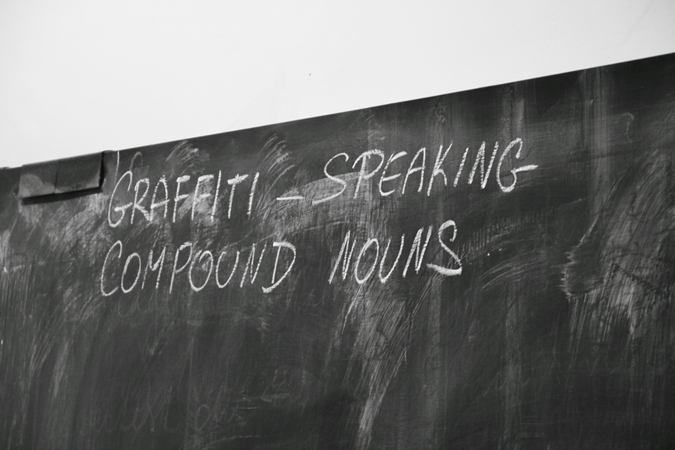 GRAFFITI - SPEAKING
COMPOUND NOUNS